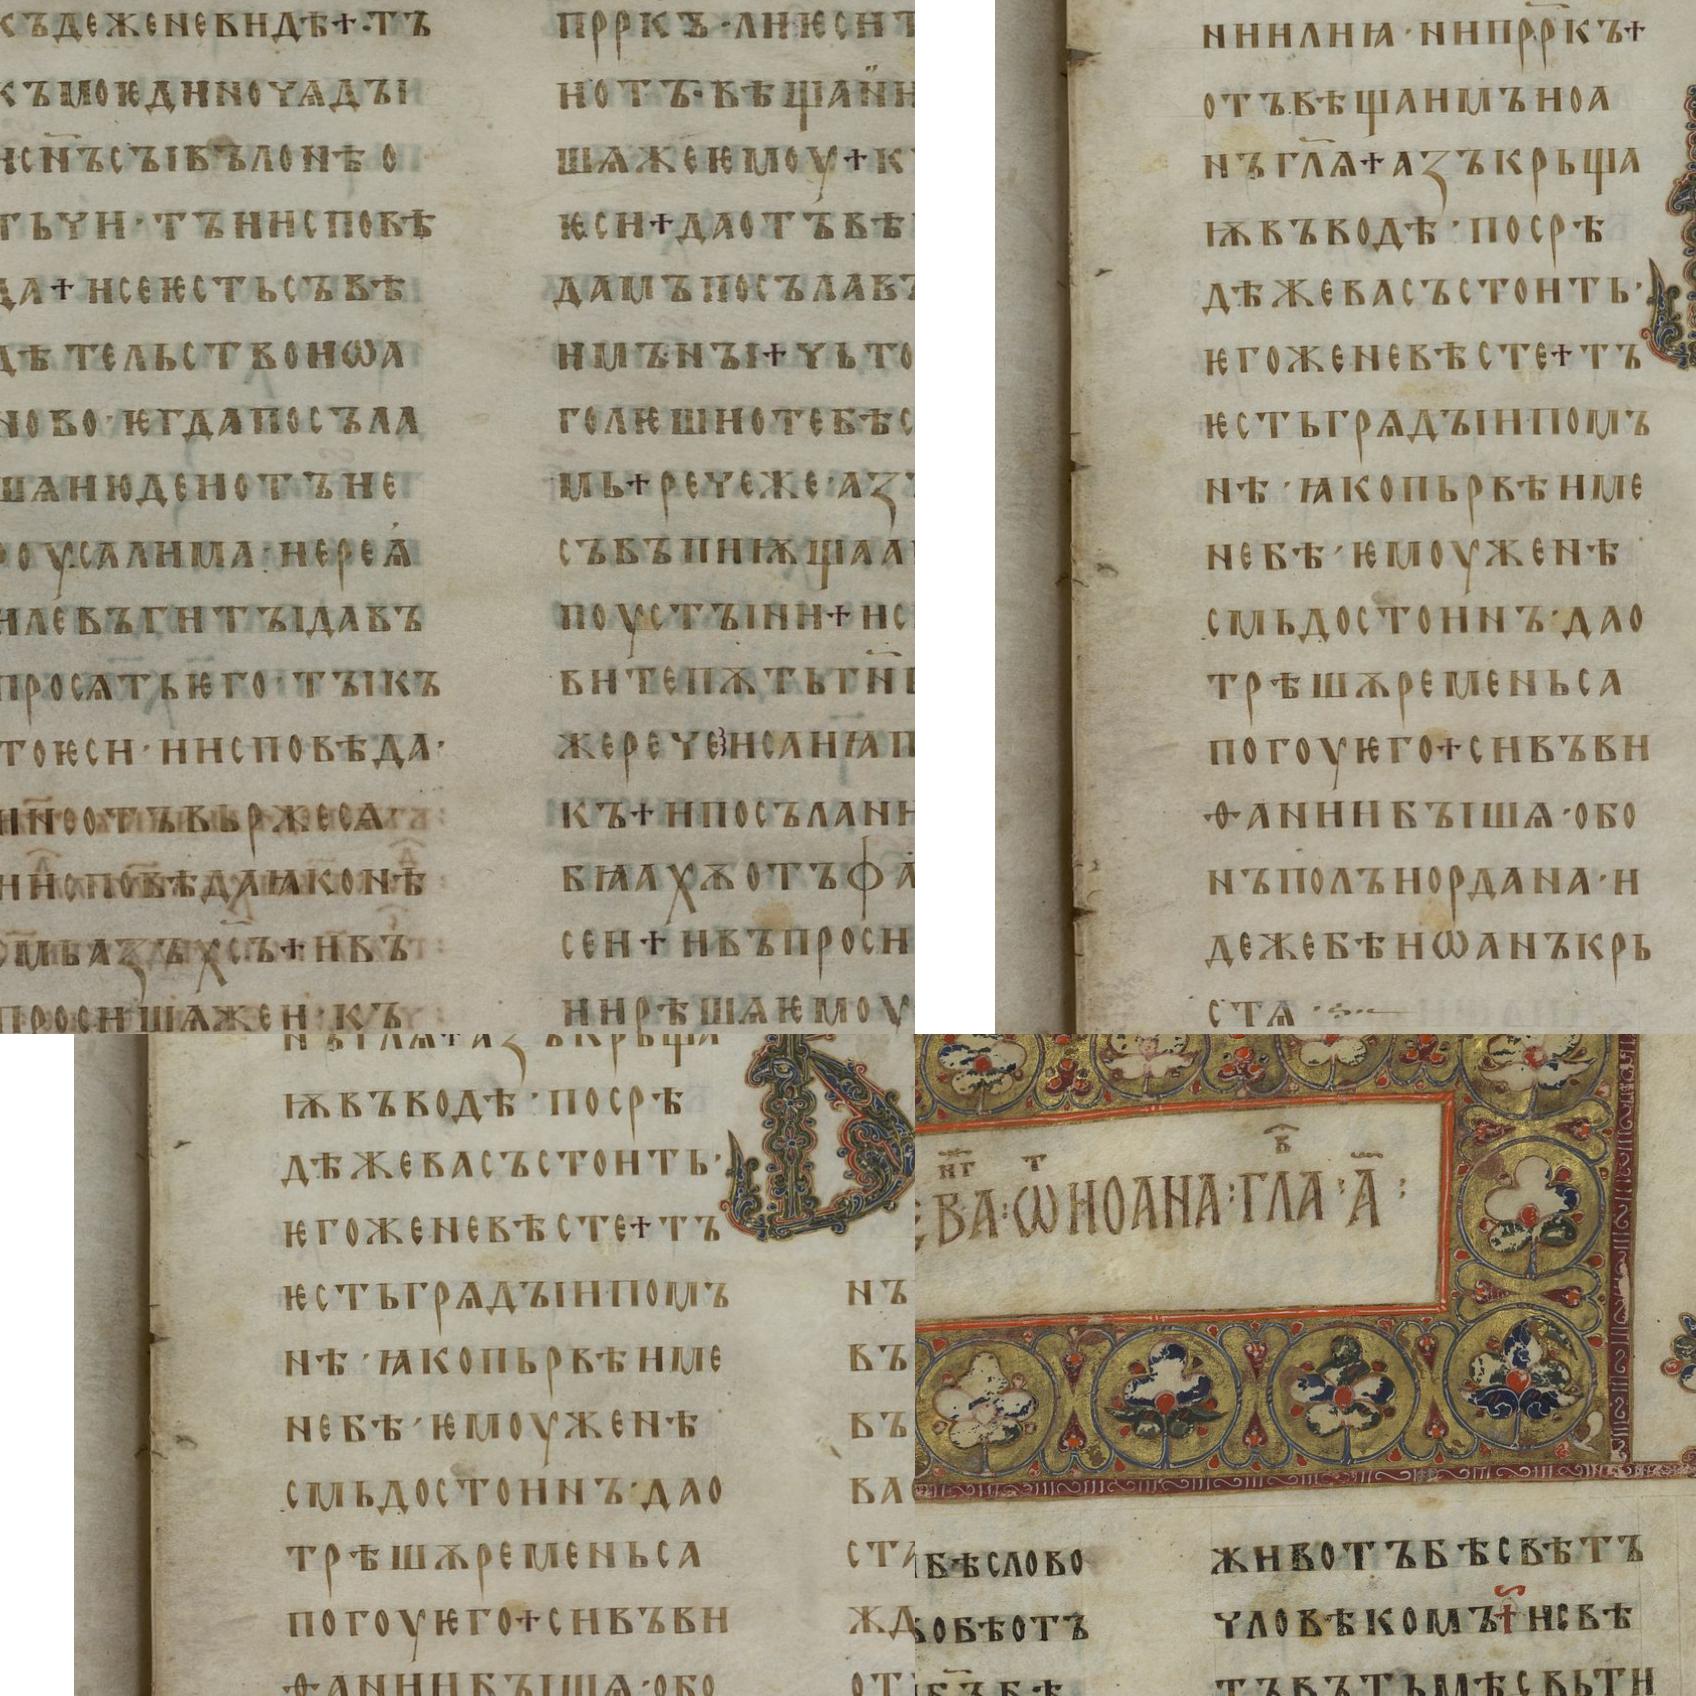 къдеженевидѣ+·тъ
къмоѥдиночѧдꙑи
исн҃ъсꙑівълонѣо
тьчи·тъииисповѣ
да+исеѥстьсъвѣ
дѣтельствоиѡа
ново·ѥгдапосъла
шѧиюдеиотъие
роусалима·иереꙗ
илевъгитꙑдавъ
просѧтьѥго·тꙑкъ
тоѥси·ииисповѣда·
инеотъвьржесѧ
ииисповѣдаꙗконѣ
смьазъх҃съ+ивъ
просишѧжеи·къ
прр҃къ·лиѥси
иотъвѣщаи
шѧжеѥмоу+к
ѥси+даотъвѣ
дамъпосълав
имънꙑ+чьто
голѥшиотебѣс
мь+речеже·аз
съвъпиѭщаа
поустꙑни+ис
витепѫтьгн҃
жеречеисаиꙗп
къ+ипосълании
бꙗахѫотъфа
сеи+ивъпроси
иирѣшѧѥмоу
ниилиꙗ·нипрр҃къ+
отъвѣщаимъиоа
нъгл҃ѧ+азъкрьща
ѭвъводѣ·посрѣ
дѣжевасъстоить·
ѥгоженевѣсте+тъ
ѥстьгрѧдꙑипомъ
нѣ·ꙗкопьрвѣиме
небѣ·ѥмоуженѣ
смьдостоинъ·дао
трѣшѫременьса
погоуѥго+сивъви
ѳаниибꙑшѧ·обо
нъполъиордана·и
дежебѣиѡанъкрь
стѧ
нъгл҃ѧ+азъкрьща
ѭвъводѣ·посрѣ
дѣжевасъстоить·
ѥгоженевѣсте+тъ
ѥстьгрѧдꙑипомъ
нѣ·ꙗкопьрвѣиме
небѣ·ѥмоуженѣ
смьдостоинъ·дао
трѣшѫременьса
погоуѥго+сивъви
ѳаниибꙑшѧ·обо
нъ
въ
въ
ва
ста
жд
от
ева:ѿиоана:глав·а҃:
бѣслово
бобѣотъ
бъбѣ
животъбѣсвѣтъ
чловѣкомъ+исвѣ
тъвътьмѣсвьти